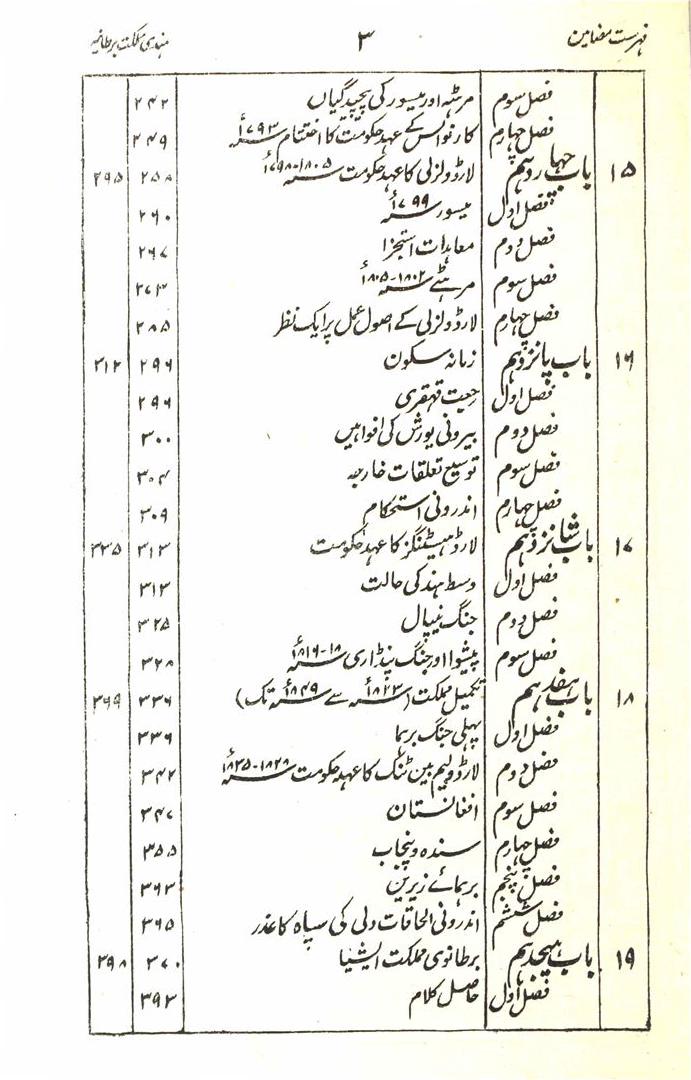 فہرست مضامین ۳ ہندی مملکت برطانیہ
فصل سوم مرہٹہ اور میسور کی پیچیدگیاں ۲۴۲
فصل چہارم کارنوالس کے عہد حکومت کا اختتام ۱۷۹۳ء ۲۴۹
۱۵ باب چہاردہم لارڈ ولزلی کا عہد حکومت ۱۸۰۵-۱۷۹۸ء ۲۵۸ ۲۹۵
فصل اول میسور ۱۷۹۹ء ۲۶۰
فصل دوم معاہدات استجزا ۲۶۷
فصل سوم مرہٹے ۱۸۰۲-۱۸۰۵ء ۲۷۳
فصل چہارم لارڈ ولزلی کے اصول عمل پر ایک نظر ۲۸۵
۱۶ باب پانزدہم زمانہ سکون ۲۹۶ ۳۱۲
فصل اول رجعت قہقری ۲۹۶
فصل دوم بیرونی یورش کی افواہیں ۳۰۰
فصل سوم توسیع تعلقات خارجہ ۳۰۴
فصل چہارم اندرونی استحکام ۳۰۹
۱۷ باب شانزدہم لارڈ ہیسٹنگز کا عہد حکومت ۳۱۳ ۳۳۵
فصل اول وسط ہند کی حالت ۳۱۳
فصل دوم جنگ نیپال ۳۲۵
فصل سوم پیشوا اور جنگ پنڈاری ۱۸-۱۸۱۶ء ۳۲۸
۱۸ باب ہفدہم تکمیل مملکت (۱۸۲۳ء سے ۱۸۴۹ء تک) ۳۳۶ ۳۶۹
فصل اول پہلی جنگ برما ۳۳۶
فصل دوم لارڈ ولیم بین ٹنک کا عہد حکومت ۱۸۲۸-۱۸۳۵ء ۳۴۲
فصل سوم افغانستان ۳۴۷
فصل چہارم سندھ و پنجاب ۳۵۵
فصل پنجم برہمائے زیرین ۳۶۳
فصل ششم اندرونی الحاقات دلی کی سپاہ کا غدر ۳۶۵
۱۹ باب ہیجدہم برطانوی مملکت ایشیا ۳۷۰ ۳۹۸
فصل اول حاصل کلام ۳۹۳